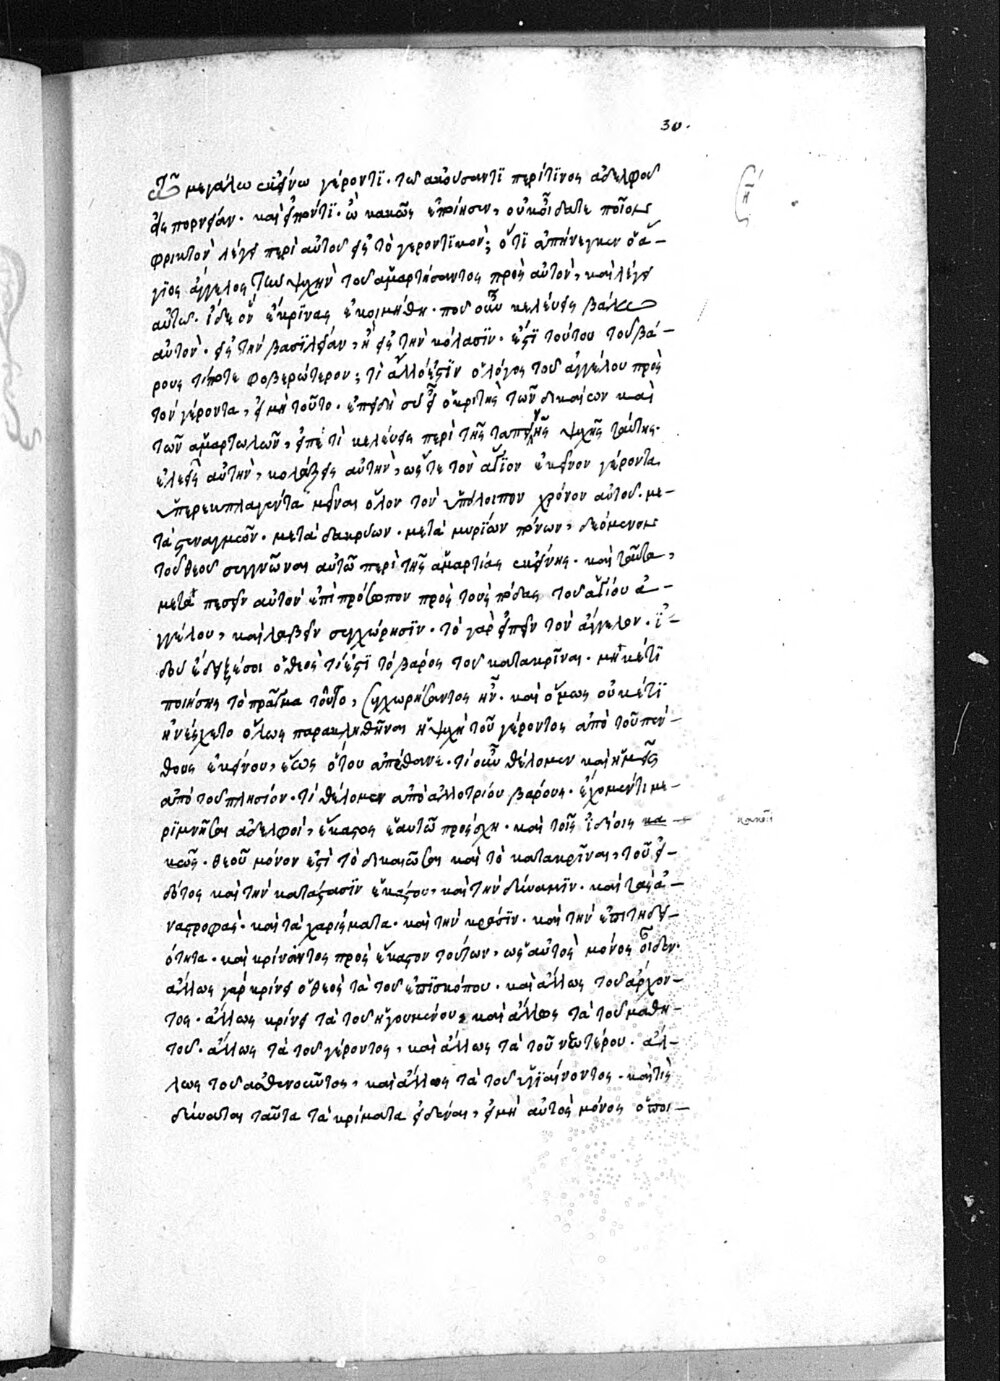 30.
Τῶ μεγάλω ἐκείνω γέροντϊ· τῶ ἀκούσαντϊ περίτϊνος ἀδελφοῦ
εἰς πορνείαν· καὶ εἰπόντϊ· ὢ κακῶς ἐποίησεν, οὐκοἴδατε ποῖον
φρικτὸν λέγει περὶ αὐτοῦ εἰς τὸ γεροντϊκὸν; ὅτϊ ἀπήνεγκεν ὁ ἅ–
γϊος ἄγγελος τὴν ψυχὴν τοῦ ἁμαρτήσαντος πρὸς αὐτὸν, καὶ λέγει
αὐτῶ· ἴδε ὃν ἔκρϊνας ἐκοιμήθη· ποῦ οὖν κελεύεις βάλω
αὐτὸν· εἰς τὴν βασϊλείαν, ἢ εἰς τὴν κόλασϊν· ἐστὶ τούτου τοῦ βά–
ρους τίποτε φοβερώτερον; τί ἄλλο ἐστὶν ὁ λόγος τοῦ ἀγγέλου πρὸς
τὸν γέροντα, εἰ μὴ τοῦτο· ἐπειδὴ σὺ εἶ ὁ κριτὴς τῶν δικαίων καὶ
τῶν ἁμαρτωλῶν, εἰπὲ τί κελεύεις περὶ τῆς ταπεινῆς ψυχῆς ταύτης·
ἐλεεῖς αὐτὴν, κολάζεις αὐτὴν, ὥστε τὸν ἅγϊον ἐκεῖνον γέροντα
ὑπερεκπλαγέντα μεῖναι ὅλον τὸν ὑπόλοιπον χρόνον αὐτοῦ· με–
τὰ στεναγμῶν· μετὰ δακρύων· μετὰ μυρίων πόνων, δεόμενον
τοῦ θεοῦ συγγνῶναι αὐτῶ περὶ τῆς ἁμαρτίας ἐκείνης· καὶ ταῦτα,
μετὰ πεσεῖν αὐτὸν ἐπὶ πρόσωπον πρὸς τοὺς πόδας τοῦ ἁγίου ἀ–
γγέλου, καὶ λαβεῖν συγχώρησϊν· τὸ γὰρ εἰπεῖν τὸν ἄγγελον· ἰ–
δοὺ ἔδειξέ σοι ὁ θεὸς τί ἐστϊ τὸ βάρος τοῦ κατακρῖναι· μηκέτϊ
ποιήσης τὸ πρᾶγμα τοῦτο, συγχωρήσαντος ἦν· καὶ ὅμως οὐκέτϊ
ἠνέσχετο ὅλως παρακληθῆναι ἡ ψυχὴ τοῦ γέροντος ἀπὸ τοῦ πέν–
θους ἐκείνου, ἕως ὅτου ἀπέθανε· τί οὖν θέλομεν καὶ ἡμεῖς
ἀπὸ τοῦ πλησίον· τί θέλομεν ἀπὸ ἀλλοτρίου βάρους· ἔχομεν τί με–
ριμνῆσαι ἀδελφοί, ἕκαστος ἑαυτῶ προσέχη· καὶ τοῖς ἰδίοις κα–
κῶς· θεοῦ μόνον ἐστὶ τὸ δικαιῶσαι καὶ τὸ κατακρῖναι, τοῦ εἰ–
δότος καὶ τὴν κατάστασϊν ἑκάστου, καὶ τὴν δύναμϊν· καὶ τὰς ἀ–
ναστροφάς· καὶ τὰ χαρίσματα· καὶ τὴν κρᾶσϊν· καὶ τὴν ἐπιτηδει–
ότητα· καὶ κρίνοντος πρὸς ἕκαστον τούτων, ὡς αὐτὸς μόνος οἶδεν·
ἄλλως γὰρ κρίνει ὁ θεὸς τὰ τοῦ ἐπισκόπου· καὶ ἄλλως τοῦ ἄρχον–
τος· ἄλλως κρίνει τὰ τοῦ ἡγουμένου, καὶ ἄλλως τὰ τοῦ μαθη–
τοῦ· ἄλλως τὰ τοῦ γέροντος, καὶ ἄλλως τὰ τοῦ νεωτέρου· ἄλ–
λως τοῦ ἀσθενοῦντος, καὶ ἄλλως τὰ τοῦ ὑγιαίνοντος· καὶ τίς
δύναται ταῦτα τὰ κρίματα εἰδέναι, εἰ μὴ αὐτὸς μόνος ὁ ποι–
κακοῖς